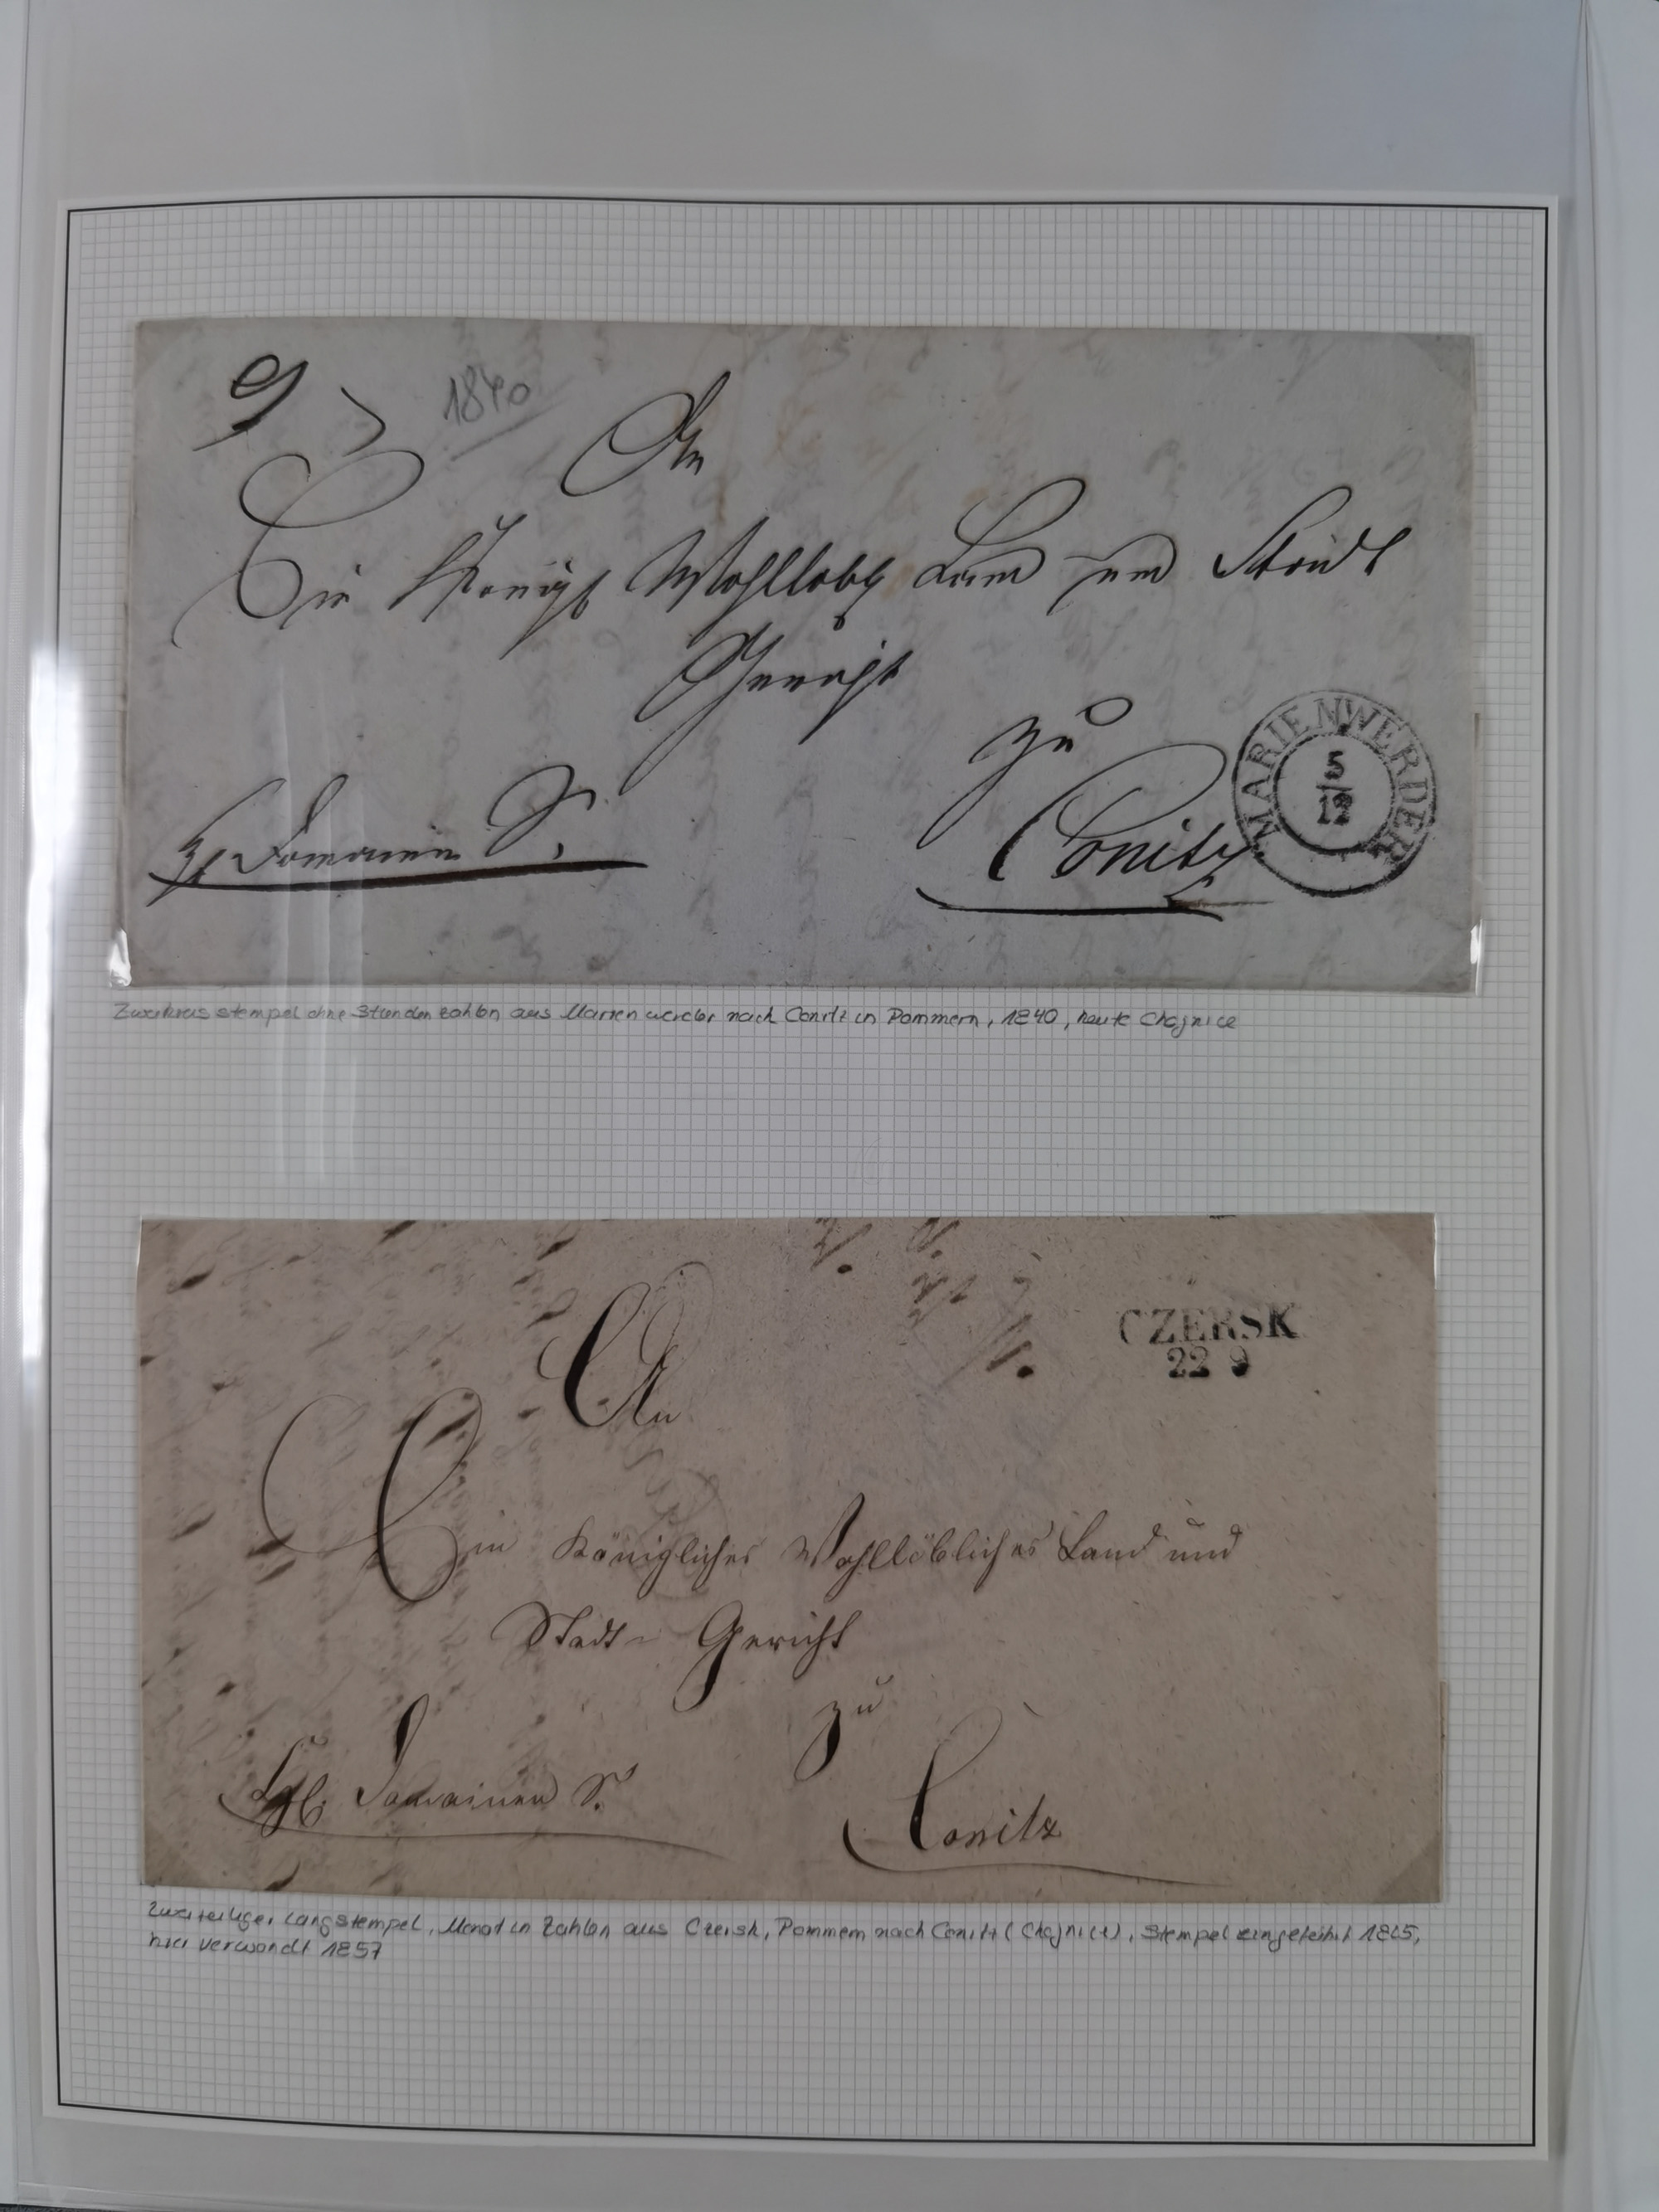 1840
An
Ein Königl Wohllöbl Land und Stadt
Gericht
zu
Conitz
Domainen S.
MARIENWERDER
5
12
Zweikreisstempel ohne Stundenzahlen aus Marienwerder nach Conitz in Pommern, 1840, heute Chojnice
CZERSK
22 9
An
Ein Königliches Wohllöbliches Land und
Stadt- Gericht
zu
Conitz
Kgl. Domainen S.
Zweizeiliger Langstempel, Monat in Zahlen aus Czersk, Pommern nach Conitz (Chojnice), Stempel eingeführt
hier verwandt 1857